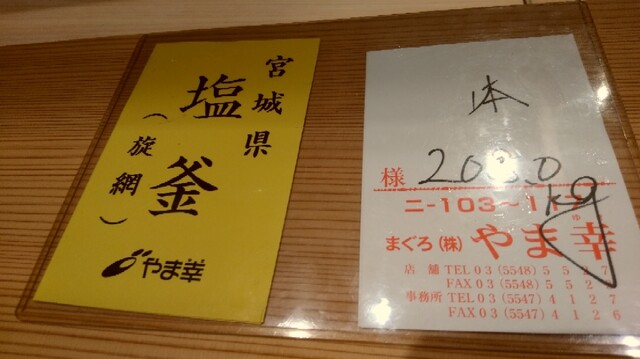 宮城県
塩釜
(旋網)
やま幸
本
208.0
kg
様
二-103~11
まぐろ(株) やま幸
ゆき
店舗 TEL 03 (5548) 5527
FAX 03 (5548) 5
事務所 TEL 03 (5547) 4127
FAX 03 (5547) 4126